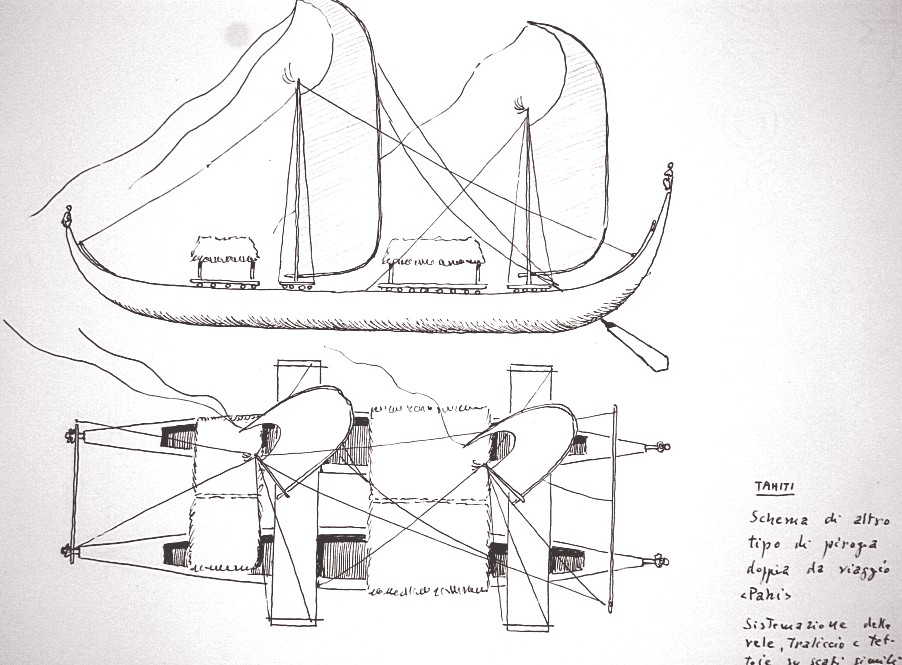 TAHITI
Schema di altro
tipo di piroga
doppia da viaggio
<Pahi>
Sistemazione delle
vele, traliccio e tet-
toie su scafi simili